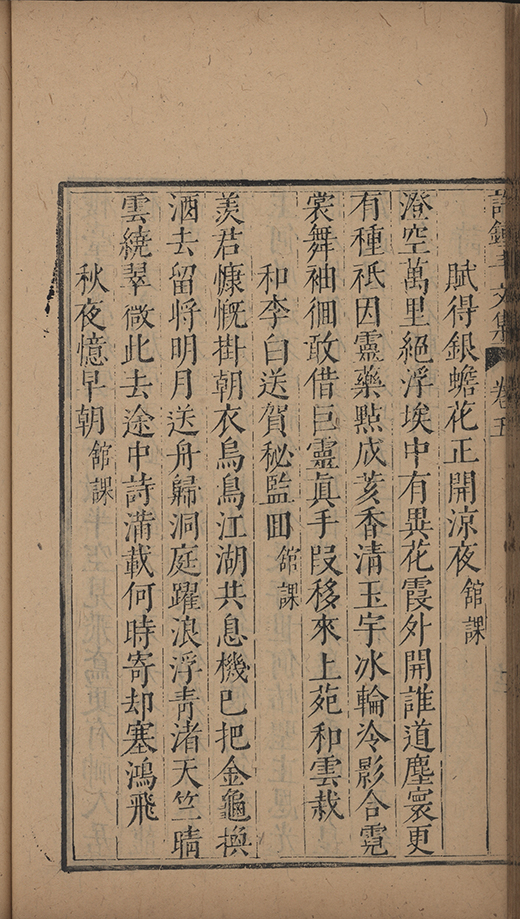 許鍾斗文集 卷五
賦得銀蟾花正開涼夜 舘課
澄空萬里絕浮埃中有異花霞外開誰道塵寰更
有種祗因靈藥㸃成荄香清玉宇冰輪泠影合霓
裳舞袖徊敢借巨靈眞手叚移來上苑和雲栽
和李白送賀秘監囬 舘課
羨君慷慨掛朝衣烏鳥江湖共息機已把金龜換
酒去留將明月送舟歸洞庭躍浪浮青渚天竺晴
雲繞翠微此去途中詩滿載何時寄却塞鴻飛
秋夜憶早朝 舘課